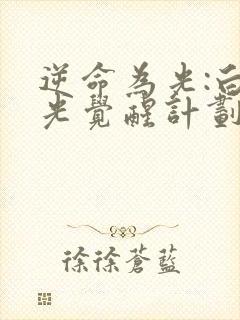 逆命為光:白
光覺醒計劃
徐徐蒼藍